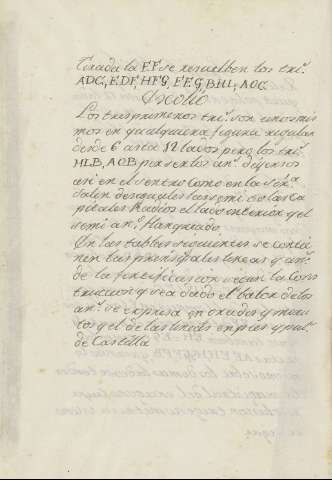 Tirada la EF se resuelben los tri.ˢ
ADC, EDF, HFG, EFG, BHI, AOC.
Escolio
Los tres primeros tri.ˢ son unos mis
mos en qualquiera figura regular
desde 6 asta 12 lados pero los tri.ˢ
HLB, AOB por ser los an.ˢ diversos
asi en el sentro como en la
salen desiguales las semi golas ca
pitales Radios el lado exterior y el
semi an.º flanqueado.
En las tablas siguientes se contie
nen las prinsipales lineas y an.ˢ
de la fortificasion segun la Cons
truccion y sea dado el balor de los
an.ˢ se expresa en grados y minu
tos y el de las lineas en pies y pul.ˢ
de Castilla